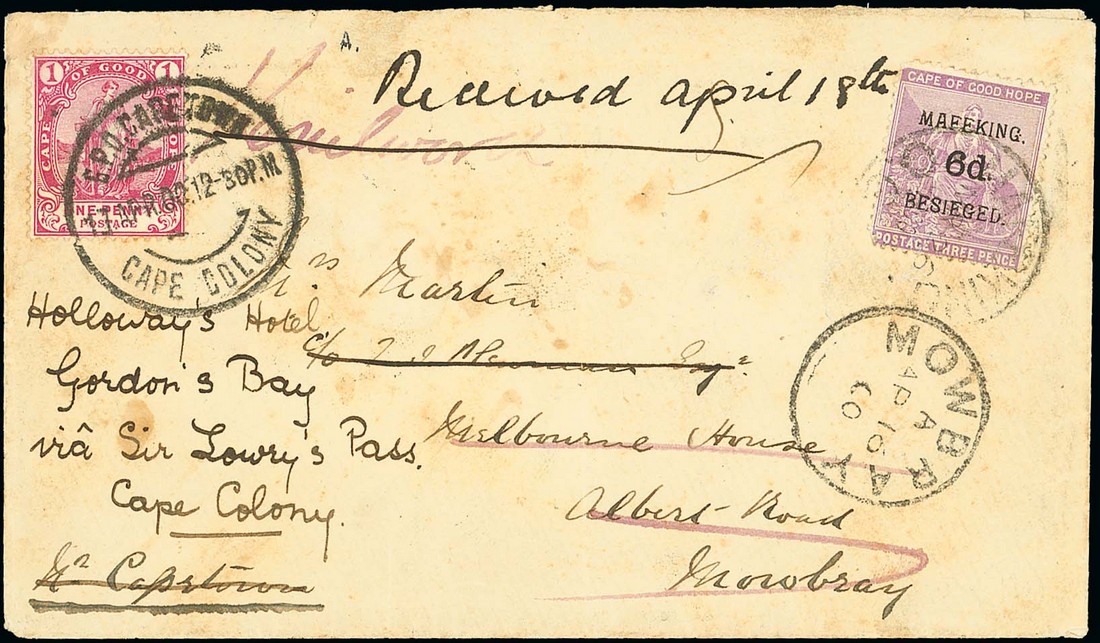 A.
Received April 18th
Kenilworth
1 1
CAPE OF GOOD HOPE
ONE PENNY
POSTAGE
G.P.O. CAPE TOWN
17 APR 00. 12-30 P.M.
CAPE COLONY
CAPE OF GOOD HOPE
MAFEKING.
6d.
BESIEGED.
POSTAGE THREE PENCE
MOWBRAY
A
AP 10
00
Mrs Martin
c/o Esqre
Melbourne House
Albert Road
Mowbray
Nr Capetown
Holloway's Hotel
Gordon's Bay
viâ Sir Lowry's Pass.
Cape Colony.